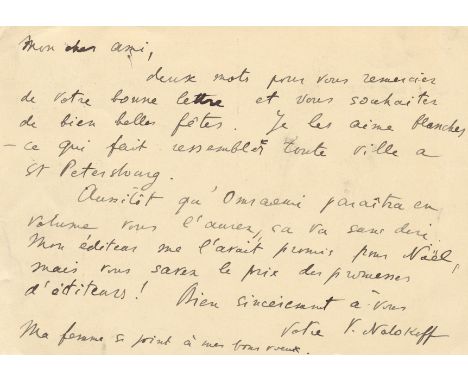 Mon cher ami,
deux mots pour vous remercier
de votre bonne lettre et vous souhaiter
de bien belles fêtes. Je les aime blanches
– ce qui fait ressembler toute ville a
St Petersbourg.
Aussitôt qu'Omraemi paraîtra en
volume vous l'aurez, ça va sans dire.
Mon éditeur me l'avait promis pour Noël,
mais vous savez le prix des promesses
d'éditeurs! Bien sincèrement à vous
Votre V. Nabokoff
Ma femme se joint à mes bons voeux.